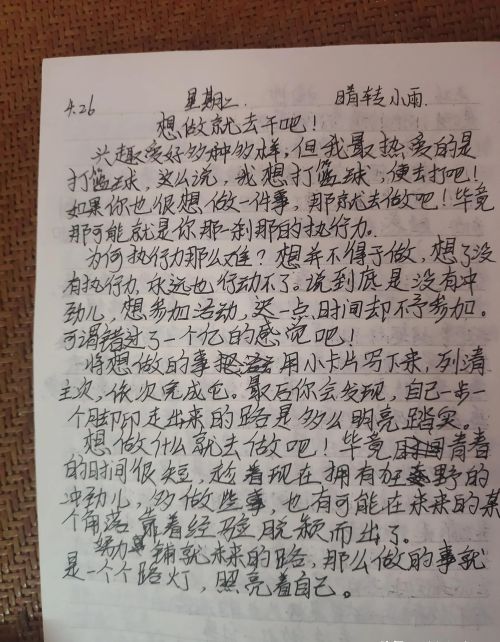 4.26 星期二 晴转小雨.
想做就去干吧!
兴趣爱好多种多样,但我最热爱的是
打篮球,这么说,我想打篮球,便去打吧!
如果你也很想做一件事,那就去做吧!毕竟
那可能就是你那一刹那的执行力.
为何执行力那么难?想并不得于做,想了没
有执行力,永远也行动不了。说到底是没有冲
劲儿,想参加活动,迟一点,时间却不予参加。
可谓错过了一个亿的感觉吧!
将想做的事 用小卡片写下来,列清
主次,依次完成它。最后你会发现,自己一步一
个脚印走出来的路是多么明亮踏实。
想做什么就去做吧!毕竟 青春
的时间很短,趁着现在拥有狂野的
冲劲儿,多做些事,也有可能在未来的某
个角落靠着经验脱颖而出了。
努力 铺就未来的路,那么做的事就
是一个个路灯,照亮着自己。